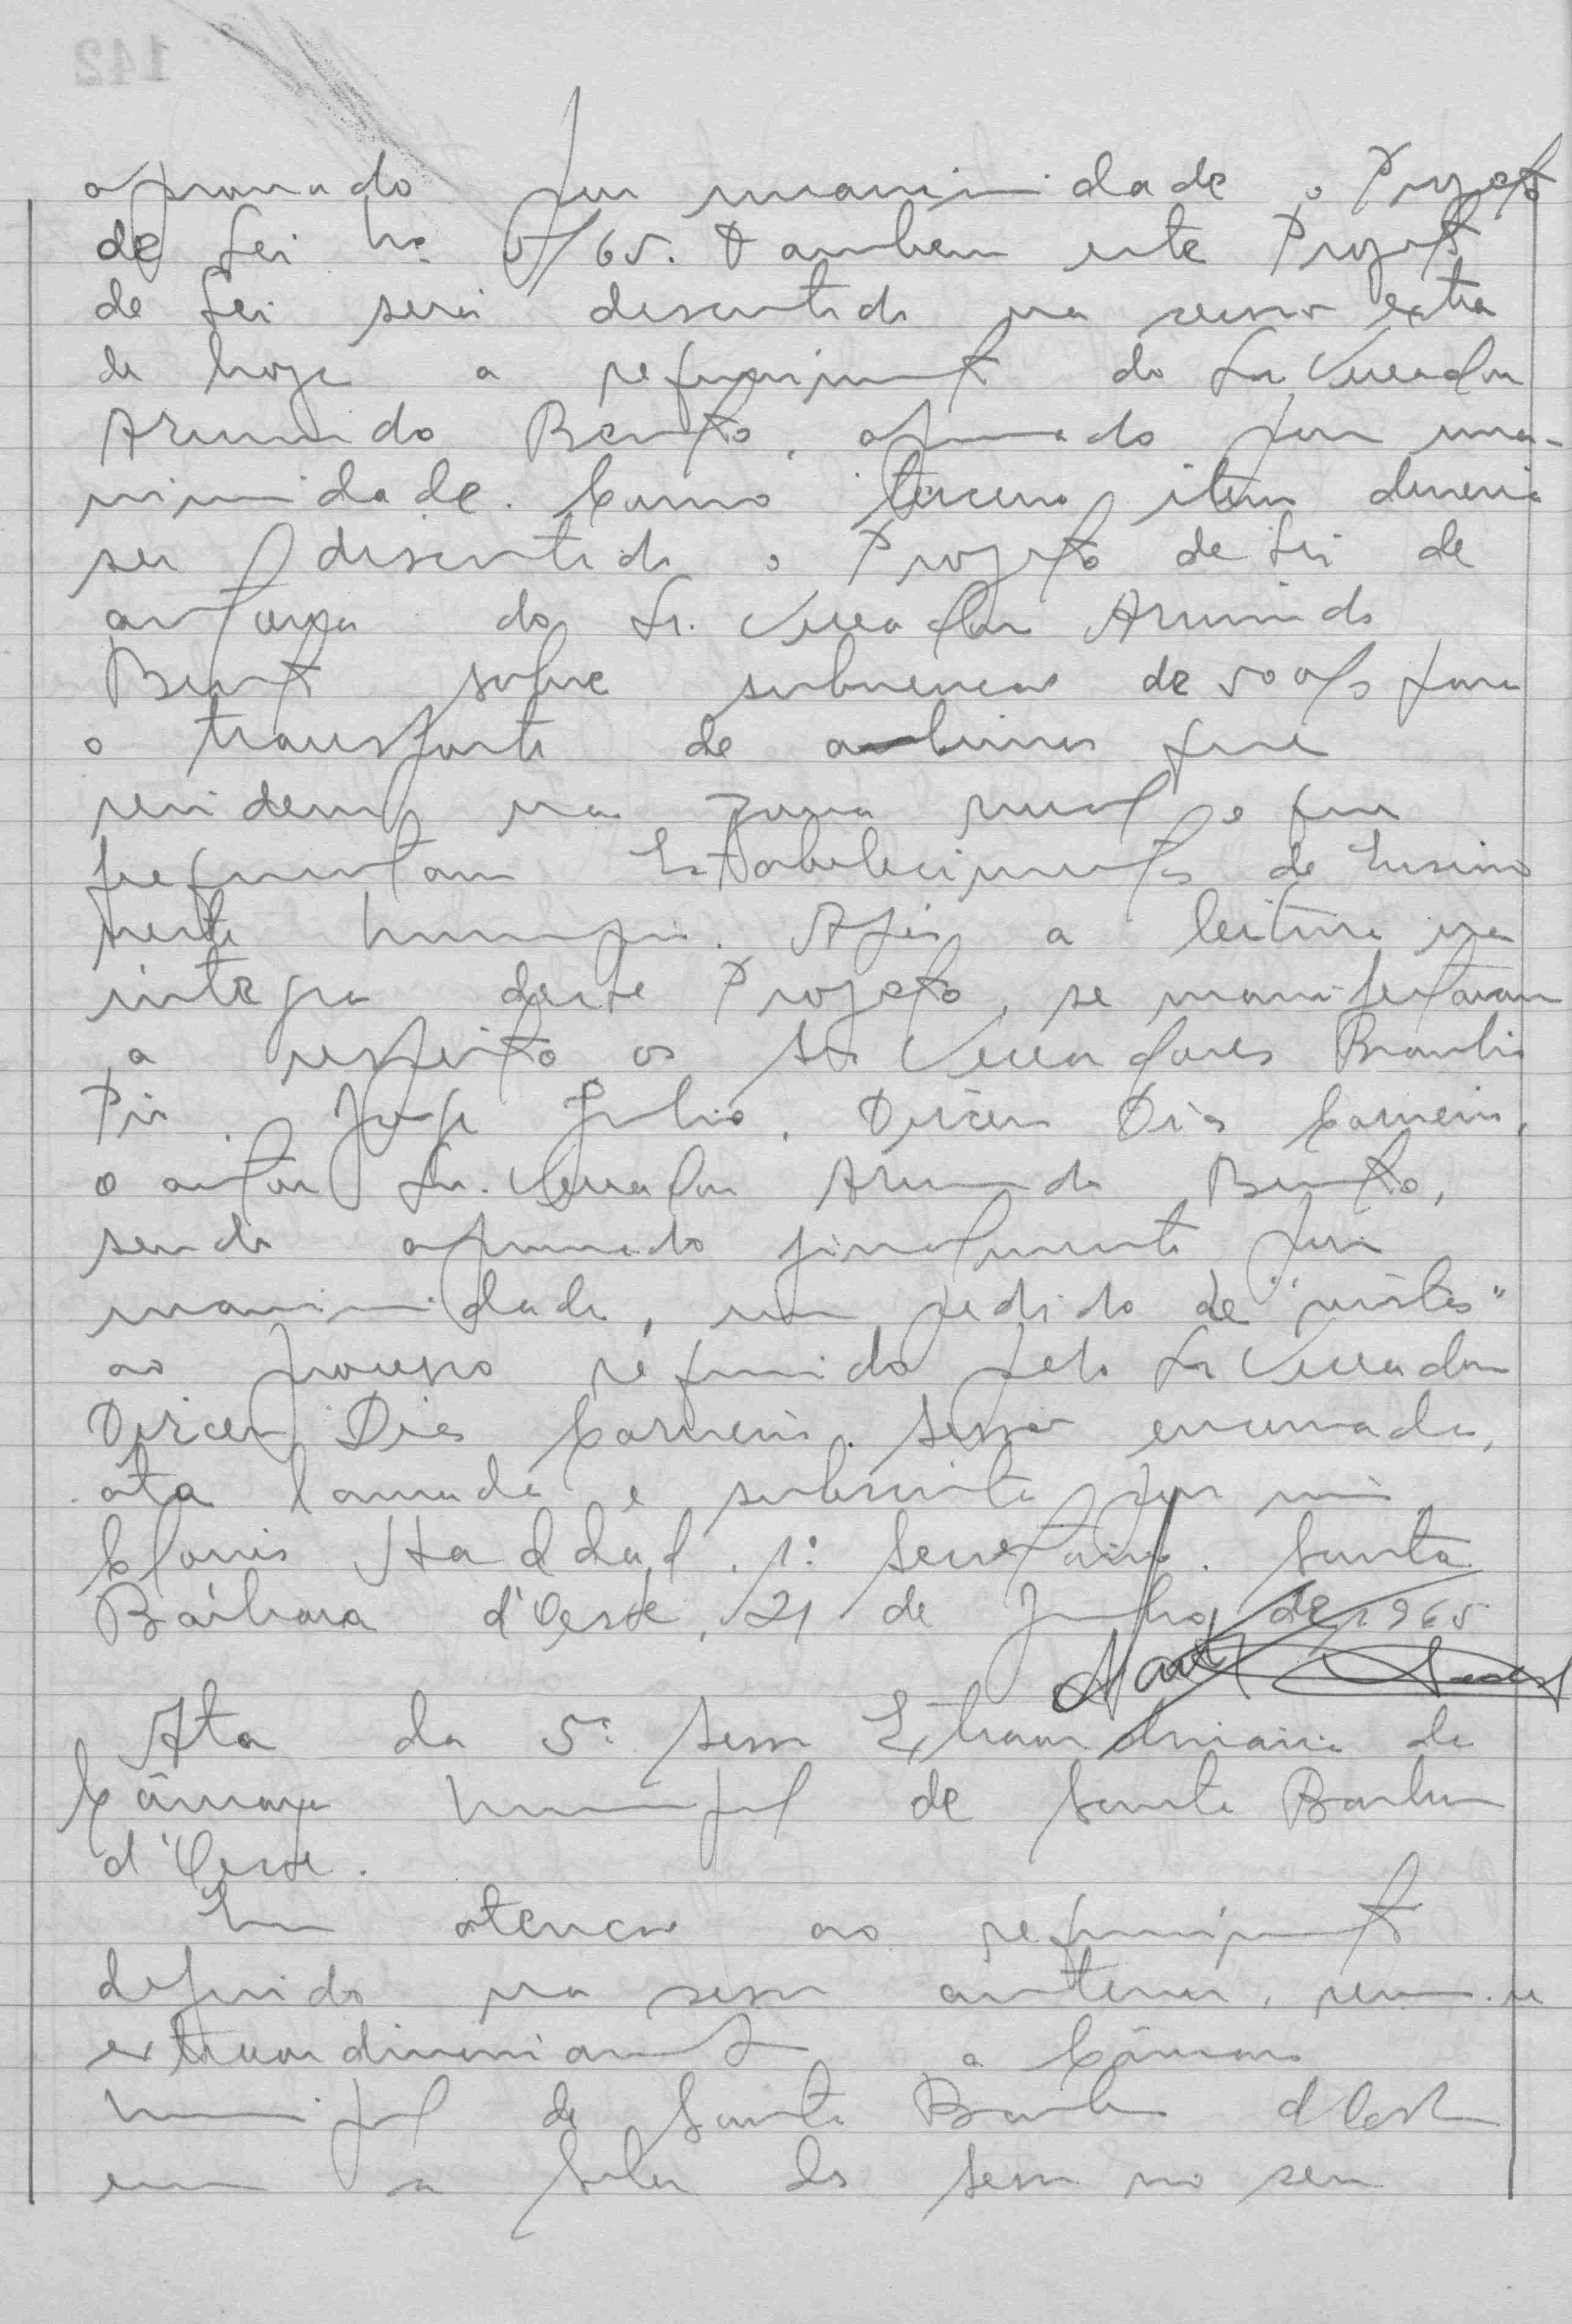 aprovado por unanimidade o Projeto
de Lei nº 5/65. Tambem este Projeto
de Lei será descutido na sessão extra
de hoje a requerimento do Sr. Vereador
Arumindo Bento, aprovado por una-
nimidade. Como terceiro item deveria
ser discutido o Projeto de Lei de
autoria do Sr. Vereador Arumindo
Bento sobre subvenção de 50% para
o transporte de alunos que
residem na zona rural e que
frequentam Estabelecimentos de Ensino
neste município. Após a leitura na
integra deste Projeto, se manifestaram
a respeito os Srs Vereadores Braulio
Pio, Jorge Julio, Dirceu Dias Carneiro,
o autor Sr. Vereador Arumindo Bento,
sendo aprovado finalmente por
unanimidade, um pedido de "vistas"
ao processo requerido pelo Sr Vereador
Dirceu Dias Carneiro. Sessão encerrada,
ata lavrada e subscrita por mim
Clovis Haddad, 1º Secretario. Santa
Bárbara d'Oeste, 21 de Junho de 1965
Ata da 5ª Sessão Extraordinaria da
Câmara Municipal de Santa Barbara
d'Oeste.
Em atenção ao requerimento
deferido na sessão anterior, reune-se
extraordinariamente a Câmara
Municipal de Santa Barbara d'Oeste
em a Sala das Sessões no seu